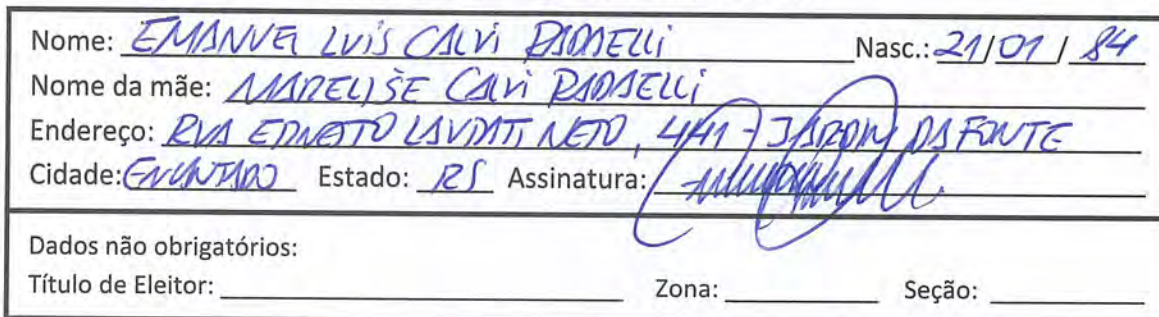 Nome: EMANUEL LUIS CALVI RADAELLI Nasc.: 21/01/84
Nome da mãe: MARELISE CALVI RADAELLI
Endereço: RUA LAUDATI NETO, 441 - JARDIM DA FONTE
Cidade: ENCANTADO Estado: RS Assinatura:
Dados não obrigatórios:
Título de Eleitor: Zona: Seção: